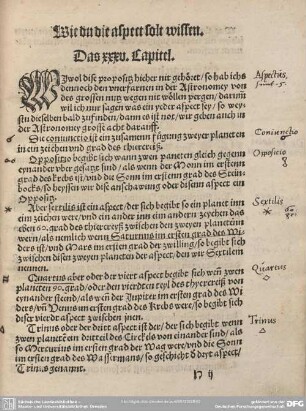 Wie du die aspect solt wissen.
Das xxxv. Capitel.
Wiwol dise propositz hieher nit gehöret/ so hab ichs
dennoch den vnerfarnen in der Astronomey von
des grossen nutz wegen nit wöllen pergen/ darumb
wil ich nur sagen was ein yeder aspect sey/ so wey-
stu dieselben bald zufinden/ dann es ist not/ wir geben auch in
der Astronomey grosse acht darauff.
Die coniunctio ist ein zusamen fügung zweyer planeten
in ein zeichen vnd grad des thiercreiß.
Oppositio begibt sich wann zwen planeten gleich gegenn
eynander vber gesatzt sind/ als wenn der Monn im erstenn
grad des krebs ist/ vnd die Sonn im ersten grad des Stein-
bocks/ so heyssen wir dise anschawung oder disem aspect ein
Oppositz.
Aber sextilis ist ein aspect/ der sich begibt so ein planet inn
eim zeichen were/ vnd ein ander inn eim andern zeychen das
eben 60. grad des thiercreyß zwischen den zweyen planeten
wern/ als nemlich wenn Saturnus im ersten grad des Wi-
ders ist/ vnd Mars im ersten grad der zwilling/ so begibt sich
zwischen disen zweyen planeten der aspect/ den wir Sextilem
nennen.
Quartus aber oder der viert aspect begibt sich wenn zwen
planeten 90. grad/ oder den vierdten teyl des thyercreyß von
eynander steend/ als wenn der Jupiter im ersten grad des Wi-
ders/ vnd Venus im ersten grad des Krebs were/ so begibt sich
diser vierdet aspect zwischen jnen.
Trinus oder der drit aspect ist der/ der sich begibt wenn
zwen planeten ein dritteil des Circkels von einander sind/ als
so Mercurius im ersten grad der Wag wer/ vnd die Sonn
im ersten grad des Wassermans/ so geschicht der aspect/
Trinus genannt.
Aspectus,
Coniunctio
Oppositio
Sextilis
Quartus
Trinus